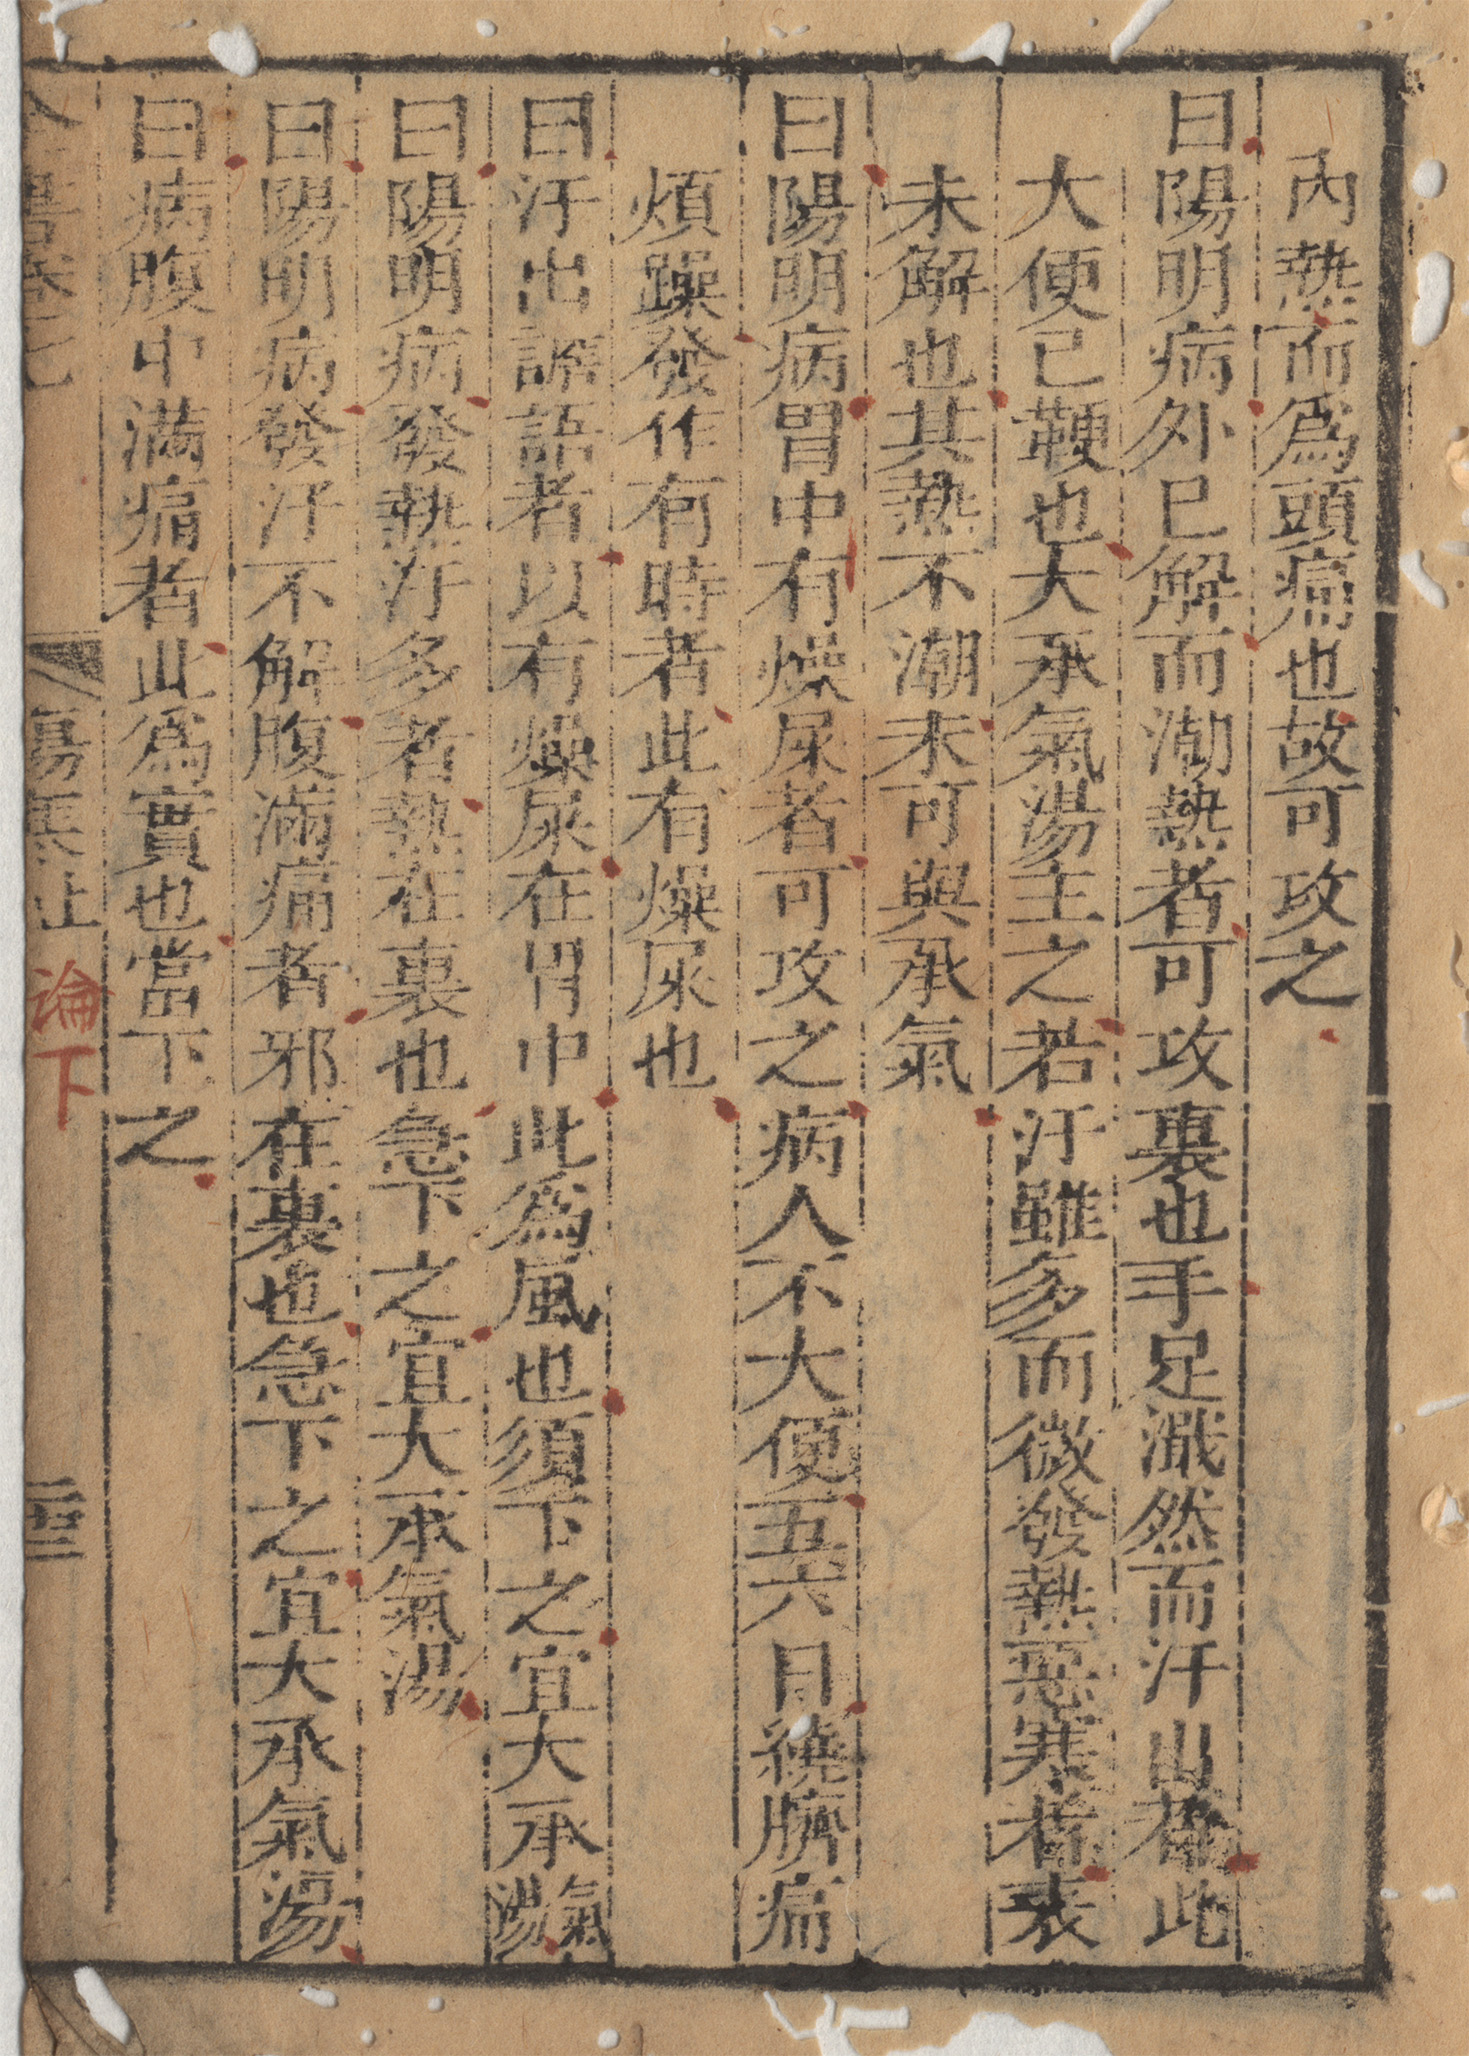 內熱而爲頭痛也故可攻之
曰陽明病外已解而潮熱者可攻裏也手足濈然而汗出者此
大便已鞕也大承氣湯主之若汗雖多而微發熱惡寒者表
未解也其熱不潮未可與承氣
曰陽明病胃中有燥屎者可攻之病人不大便五六日繞臍痛
煩躁發作有時者此有燥屎也
曰汗出譫語者以有燥屎在胃中此爲風也須下之宜大承氣湯
曰陽明病發熱汗多者熱在裏也急下之宜大承氣湯
曰陽明病發汗不解腹滿痛者邪在裏也急下之宜大承氣湯
曰病腹中滿痛者此爲實也當下之
全書卷七 傷寒上 論下